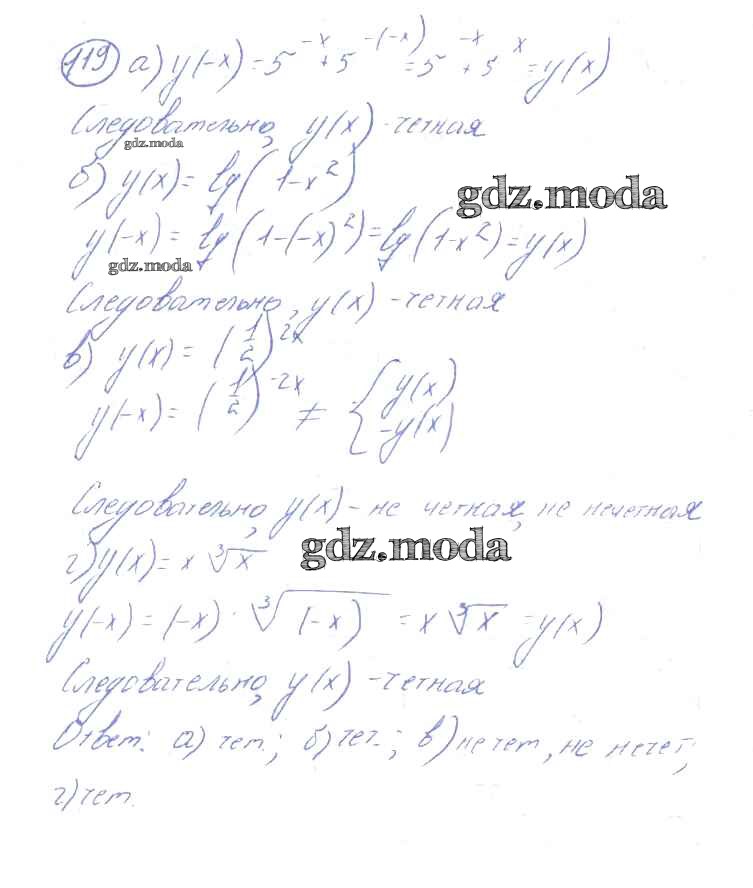 119 а) y(-x) = 5^-x + 5^-(-x) = 5^-x + 5^x = y(x)
Следовательно, y(x) - четная
gdz.moda
б) y(x) = lg(1-x²)
gdz.moda
y(-x) = lg(1-(-x)²) = lg(1-x²) = y(x)
gdz.moda
Следовательно, y(x) - четная
в) y(x) = (1/2)^2x
y(-x) = (1/2)^-2x ≠ { y(x)
-y(x)
Следовательно, y(x) - не четная, не нечетная
г) y(x) = x ∛x
gdz.moda
y(-x) = (-x) · ∛(-x) = x ∛x = y(x)
Следовательно, y(x) - четная
Ответ: а) чет; б) чет.; в) не чет, не нечет;
г) чет.